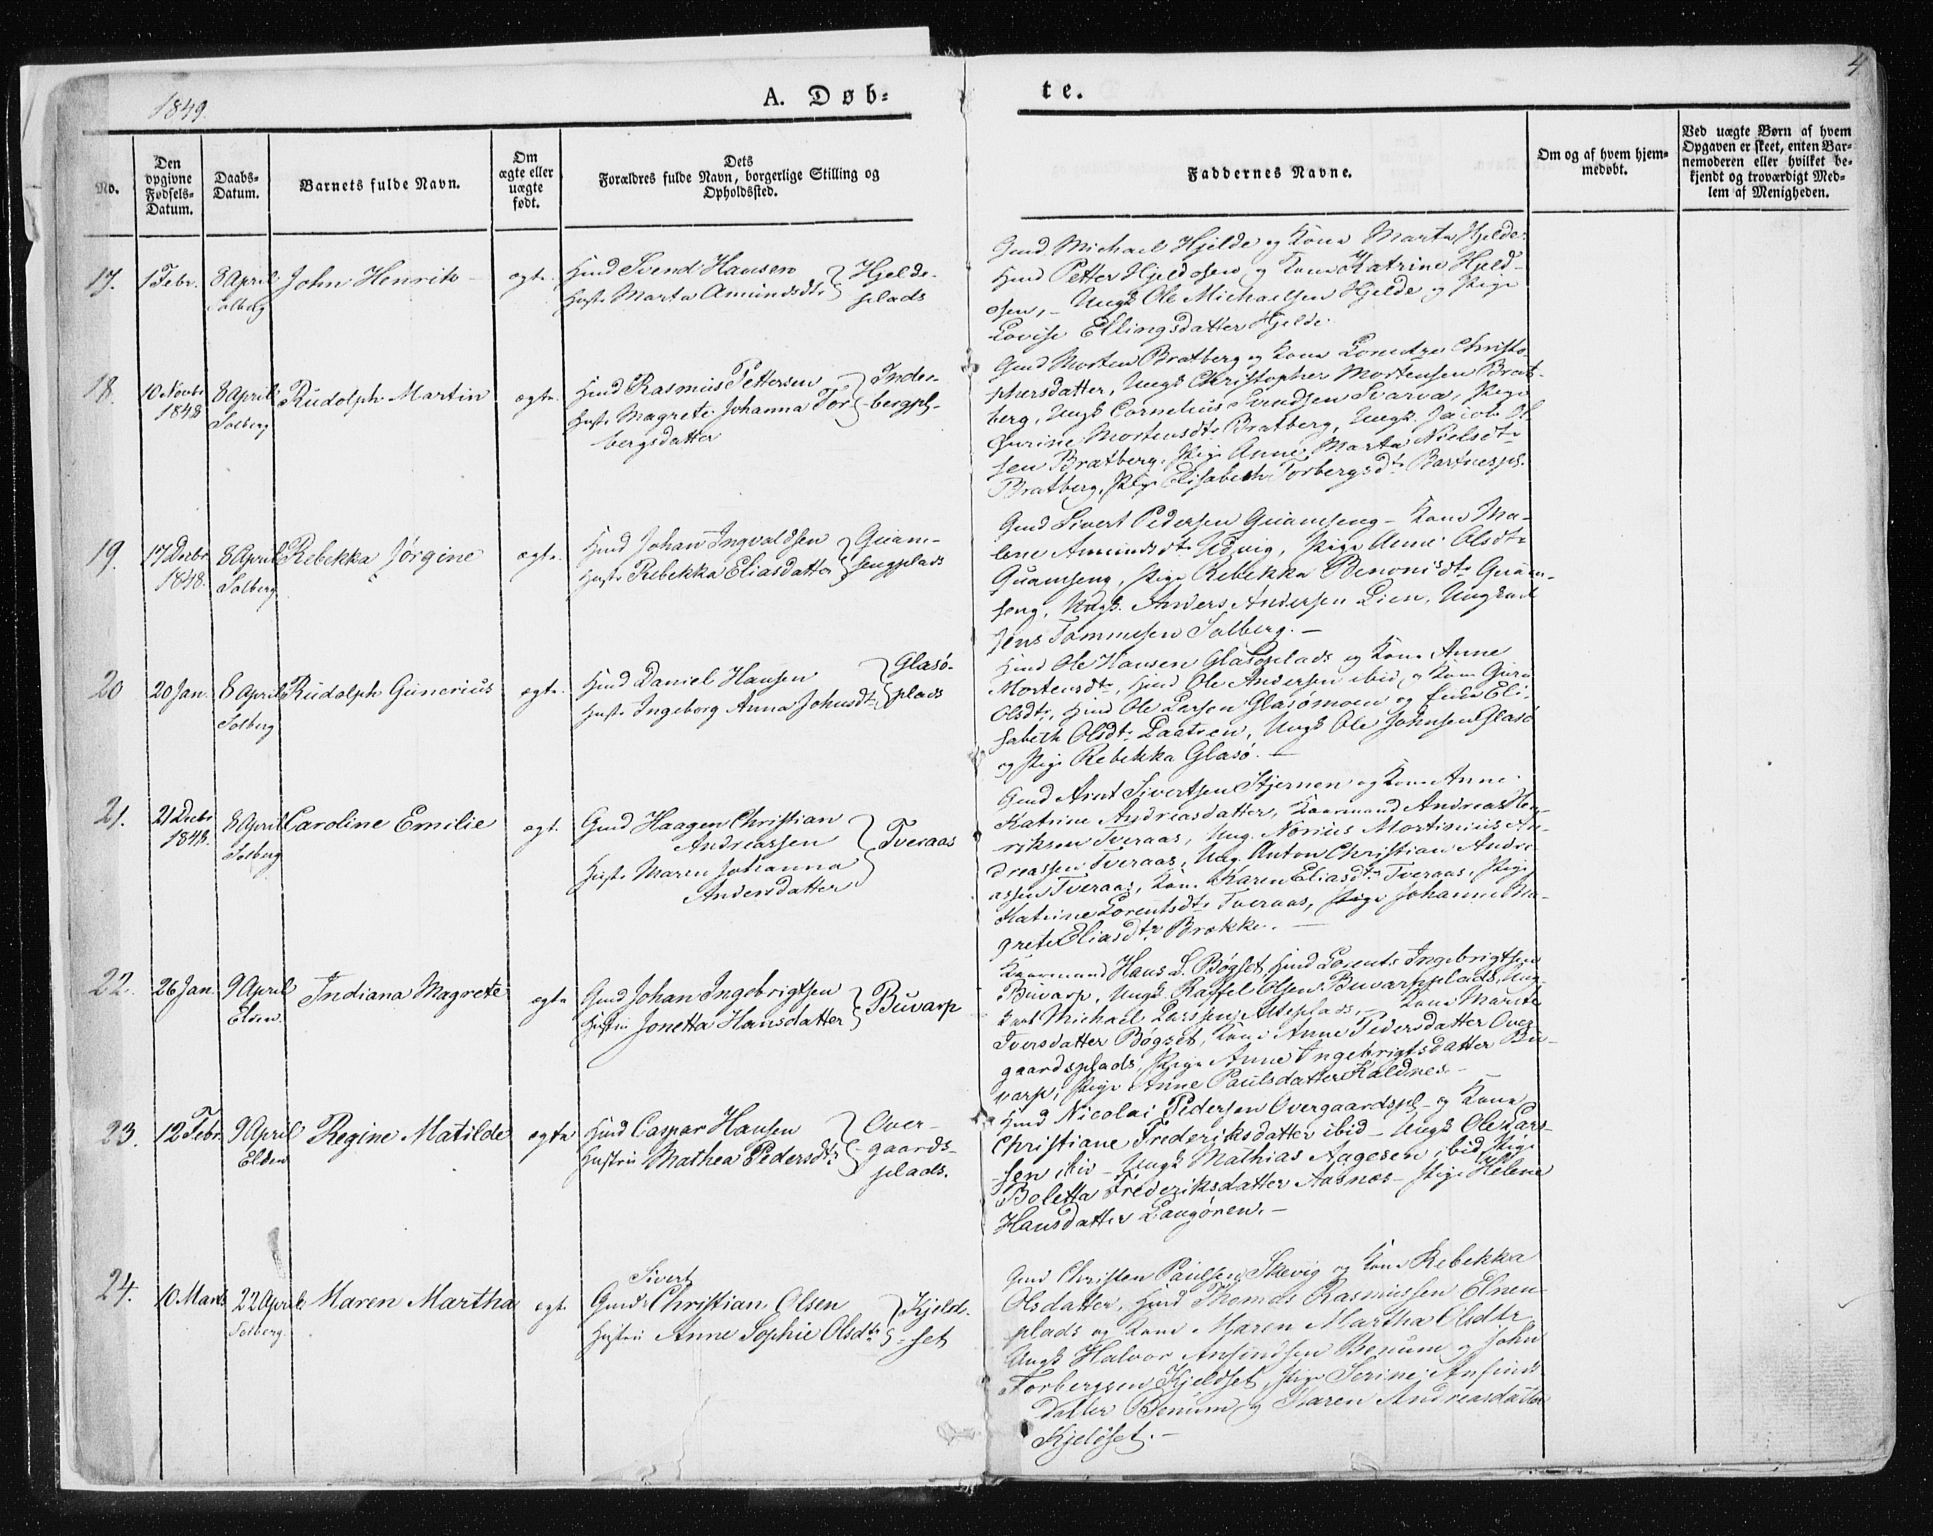 1849.
A. Døb-
te.
4
No.
Den opgivne Fødsels-Datum.
Daabs-Datum.
Barnets fulde Navn.
Om ægte eller uægte født.
Dets Forældres fulde Navn, borgerlige Stilling og Opholdssted.
Faddernes Navne.
Om og af hvem hjemmedøbt.
Ved uægte Børn af hvem Opgaven er skeet, enten Barnemoderen eller hvilket bekjendt og troværdigt Medlem af Menigheden.
17. 1 Febr. 8 April Solberg
John Henrik
ægte
Huusmd Svend Hansen
Hustr Marta Amundsdtr
Hjelde-
plads
Gmd Michael Hjelde og Kone Marta Hjelde
Husmd Petter Hjeldosen og Kone Katrine Hjeld-
osen, Ungk Ole Michaelsen Hjelde og Pige
Lovise Ellingsdatter Hjelde.
18. 10 Novbr 1848 8 April Solberg
Rudolph Martin
ægte
Husmd Rasmus Pettersen
Hustr Magrete Johanna Tor-
bergsdatter
Inder-
bergpl.
Gmd Morten Bratberg og Kone Lorentze Christo-
phersdatter, Ungk Christopher Mortensen Brat-
berg, Ungk Cornelius Svendsen Svarva, Pige
Gurine Mortensdtr Bratberg, Ungk Jacob Ol-
sen Bratberg, Pige Anne Marta Nielsdtr
Bratberg, Pige Elisabeth Torbergsdtr Bartnespl.
19. 17 Decbr 1848. 8 April Solberg
Rebekka Jørgine
ægte
Husmd Johan Ingvaldsen
Hustr Rebekka Eliasdatter
Quam-
sengplads
Gmd Sivert Pedersen Quamseng - Kone Ma-
lene Amundsdtr Udvig, Pige Anne Olsdtr
Quamseng, Pige Rebekka Benonisdtr Quam-
seng, Ungk. Anders Andersen Lien, Ungkarl
Jens Tommesen Solberg. -
20 20 Jan. 8 April Solberg
Rudolph Gunerius
ægte
Husmd Daniel Hansen
Hustr Ingeborg Anna Johnsdtr
Glasø-
plads
Husmd Ole Hansen Glasøplads og Kone Anne
Mortensdtr, Husmd Ole Andersen ibid, og Kone Guru
Olsdtr, Husmd Ole Larsen Glasømoen og Enke Eli-
sabeth Olsdtr, Ungk Ole Johnsen Glasø
og Pige Rebekka Glasø. -
21. 21 Decbr 1848. 8 April Solberg
Caroline Emilie
ægt.
Gmd Haagen Christian
Andreassen
Hustr Maren Johanna
Andersdatter
Tveraas
Gmd Arnt Sivertsen Stjernen og Kone Anne
Katrine Andreasdatter, Kaarmand Andreas Hen-
riksen Tveraas, Ung. Norius Mortinius An-
dreassen Tveraas, Ung. Anton Christian Andre-
assen Tveraas, Kone Karen Eliasdtr Tveraas, Pige
Katrine Lorentsdtr Tveraas, Pige Johanne Ma-
grete Eliasdtr Brokke. -
22. 26 Jan. 9 April Elden.
Indiana Magrete
ægte
Gmd Johan Ingebrigtsen
Hustru Jonetta Hansdatter
Buvarp
Kaarmand Hans L. Bøgset, Husmd Lorents Ingebrigtsen
Buvarp, Ungk Raffel Olsen Buvarpplads, Ung-
karl Michael Larssen, Kone Marete
Iversdatter Bøgset, Kone Anne Pedersdatter Over-
gaardsplads, Pige Anne Ingebrigtsdatter Bu-
varp, Pige Anne Paulsdatter Kaldnes. -
23. 12 Febr. 9 April Elden
Regine Matilde
ægte
Husmd Caspar Hansen
Hustru Mathea Pedersdtr
Over-
gaards-
plads.
Husmd Nicolai Pedersen Overgaardspl. og Kone
Christiane Frederiksdatter ibid - Ungk Ole Lars-
sen ibid - Ungk Mathias Aagesen ibid, Pige
Boletta Frederiksdatter Aasnæs - Pige Helene
Hansdatter Langøren. -
24. 10 Marts 22 April Solberg.
Maren Martha
ægt.
Sivert
Gmd Christian Olsen
Hustru Anne Sophie Olsdtr
Kjeld-
set
Gmd Christen Paulsen Skevig og Kone Rebekka
Olsdatter, Husmd Thomas Rasmussen Elnen-
plads og Kone Maren Martha Olsdtr
Ungk Halvor Ansindsen Benum og John
Torbergsen Kjeldset, Pige Serine Ansinds-
datter Benum og Karen Andreasdatter
Kjeldset. -